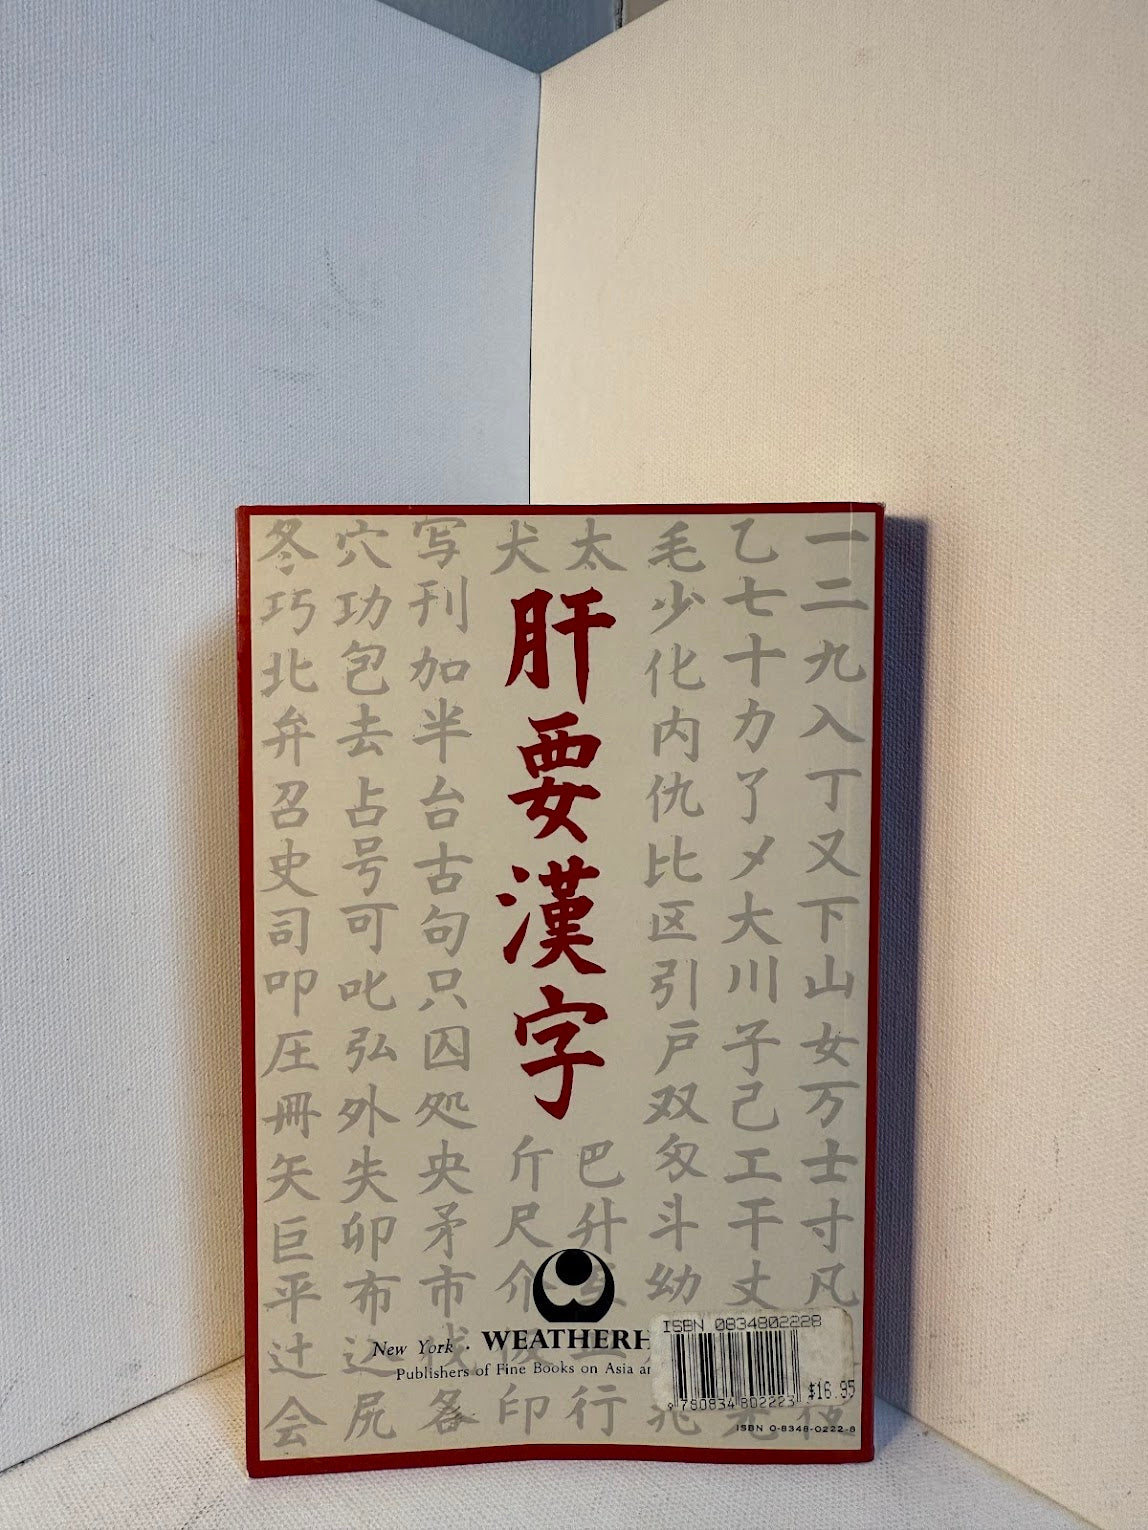 一二九入丁又下山女万士寸凡
乙七十力了メ大川子己工干丈
毛少化内仇比区引戸双匁斗幼兆
太
巴升互
行
犬
斤尺介
印
肝要漢字
写刊加半台古句只囚処央矛市伐各
穴功包去占号可叱弘外失卯布込尻
冬巧北弁召史司叩圧冊矢巨平辻会
New York · WEATHERH
Publishers of Fine Books on Asia
ISBN 0834802228
$16.95
9 780834 802223
ISBN 0-8348-0222-8